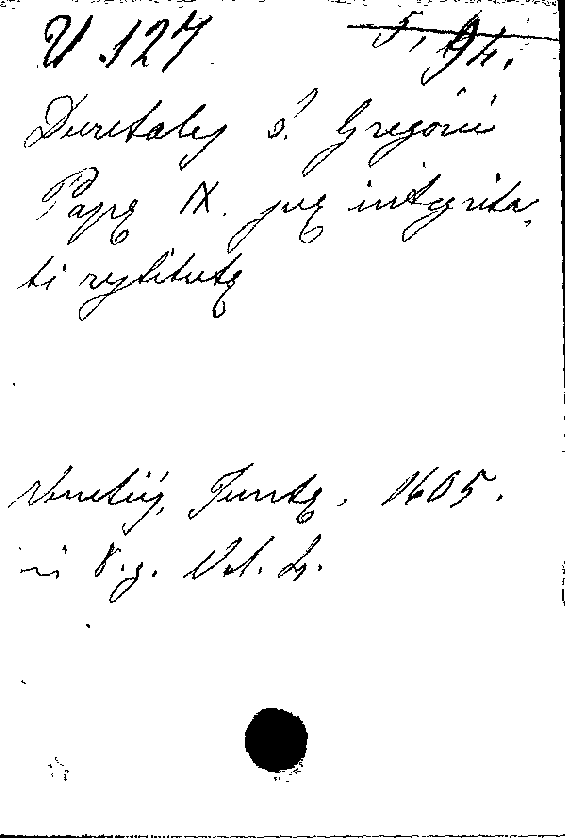 U.127 5, 94.
Decretales S. Gregorii
Papae IX. suae integrita-
ti restitutae
Venetiis, Juntae, 1605.
in 8.g. Vol. 2.